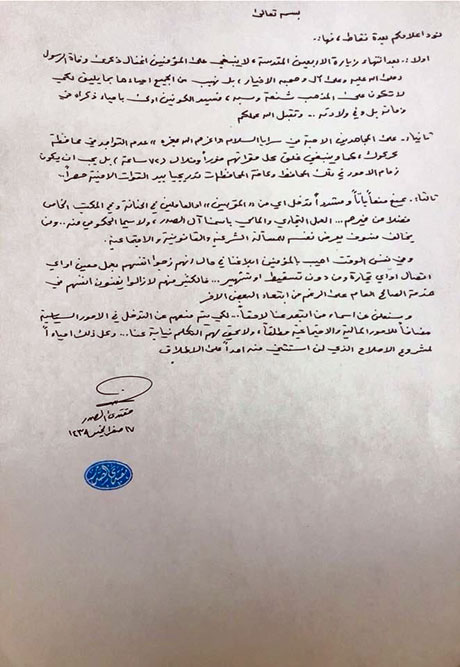 بسمه تعالى
نود اعلامكم بعدة نقاط، فيها:
اولاً: بعد انتهاء زيارة الاربعين المقدسة، لا ينبغي على المؤمنين اغفال ذكرى وفاة الرسول
صلى الله عليه وعلى آله وصحبه الاخيار، بل نهيب من الجميع احياءها بما يليق لكي
لا تكون على المذهب شنعة وسبة، فسيد الكونين اولى باحياء ذكراه في
وفاته بل وفي ولادته .. وتقبل الله عملكم
ثانياً: على المجاهدين الاحبة في سرايا السلام واعزهم الله بعزه، عدم التواجد في محافظة
كركوك، كما وينبغي غلق كل مقراتهم فوراً وخلال (٧٢ ساعة)، بل يجب ان يكون
زمام الامور في تلك المحافظة وكافة المحافظات تدريجيا بيد القوات الامنية حصراً.
ثالثاً: يمنع منعاً باتاً ومشدداً تدخل اي من (المقربين) او العاملين في الحنانة وفي المكتب الخاص
فضلا عن غيرهم ... العمل التجاري والمالي باسمنا آل الصدر، ولاسيما الحكومي منه .. ومن
يخالف فسوف يعرض نفسه للمسألة الشرعية والقانونية والاجتماعية.
وفي نفس الوقت اهيب بالمؤمنين ابلاغنا في حال انهم زجوا انفسهم بعمل معين او اي
اتصال او اي تجارة ومن دون تسقيط او تشهير ... فالكثير منهم لازالوا يفنون انفسهم في
خدمة الصالح العام على الرغم من ابتعاد البعض الآخر
وسنعلن عن اسماء من ابتعد عنا لاحقاً ... لكي يتم منعهم عن التدخل في الامور السياسية
مضافاً للامور المالية والاجتماعية مطلقاً، ولا يحق لهم التكلم نيابة عنا .. وكل ذلك احياءاً
لمشروع الاصلاح الذي لن استثني منه احداً على الاطلاق
مقتدى الصدر
١٧ صفر الخير ١٤٣٩